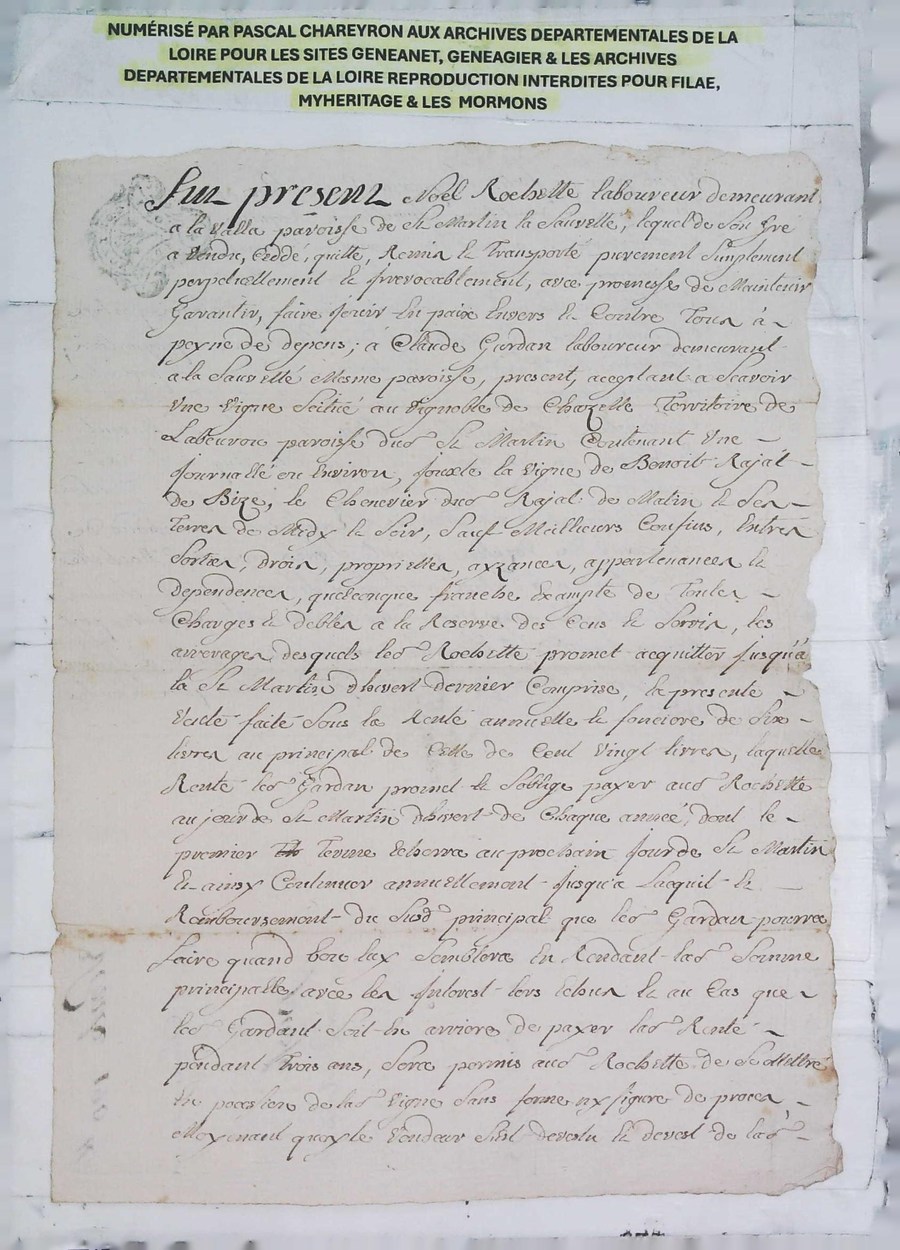 NUMÉRISÉ PAR PASCAL CHAREYRON AUX ARCHIVES DEPARTEMENTALES DE LA
LOIRE POUR LES SITES GENEANET, GENEAGIER & LES ARCHIVES
DEPARTEMENTALES DE LA LOIRE REPRODUCTION INTERDITES POUR FILAE,
MYHERITAGE & LES MORMONS
Fut present Noel Rochette laboureur demeurant
a la Valla paroisse de St Martin la Sauveté, lequel de Son Gré
a Vendu, Ceddé, quitté, Remis et Transporté purement Simplement
perpetuellement et irrevocablement, avec promesse de Maintenir
Garantir, faire Jouir En paix Envers et Contre Tous à
peyne de depens, à Claude Gardan laboureur demeurant
a la Sauvetté Mesme paroisse, present, aceptant a Scavoir
Vne Vigne Scitué au Vignoble de Chazelle Territoire de
paroisse dud St Martin Contenant Vne
Journallé ou Environ, Jouxte la Vigne de Benoit Rajat
de Bize, le Chenevier dud Rajat de Matin et Ses
Terres de Midy et Soir, Sauf Meillieurs Confins, Entrés
Sorties, drois, proprietés, ayzances, appartenances et
dependences, quelconque franche Exampte de Toutes
Charges et debtes a la Reserve des Cens et Servis, les
arrerages desquels led Rochette promet acquitter Jusqu'à
la St Martin dhivert dernier Comprise, la presente
Vente faite Sous la Rente annuelle et fonciere de Six
livres au principal de Celle de Cent Vingt livres, laquelle
Rente led Gardan promet et Soblige payer aud Rochette
au jour de St Martin dhivert de Chaque année, dont le
premier Terme Echerra au prochain Jour de St Martin
Et ainsy Continuer annuellement Jusqu'a Lacquit et
Remboursement du Susd principal que led Gardan pourra
faire quand bon luy Semblera En Rendant lad Somme
principalle avec les Interest lors Echus Et au Cas que
led Gardant Soit En arriere de payer lad Rente
pendant Trois ans, Sera permis aud Rochette de Se Mettre
En possession de lad Vigne Sans forme ny figure de proces
Moyenant quoy le Vendeur Sest devestu et devest de lad